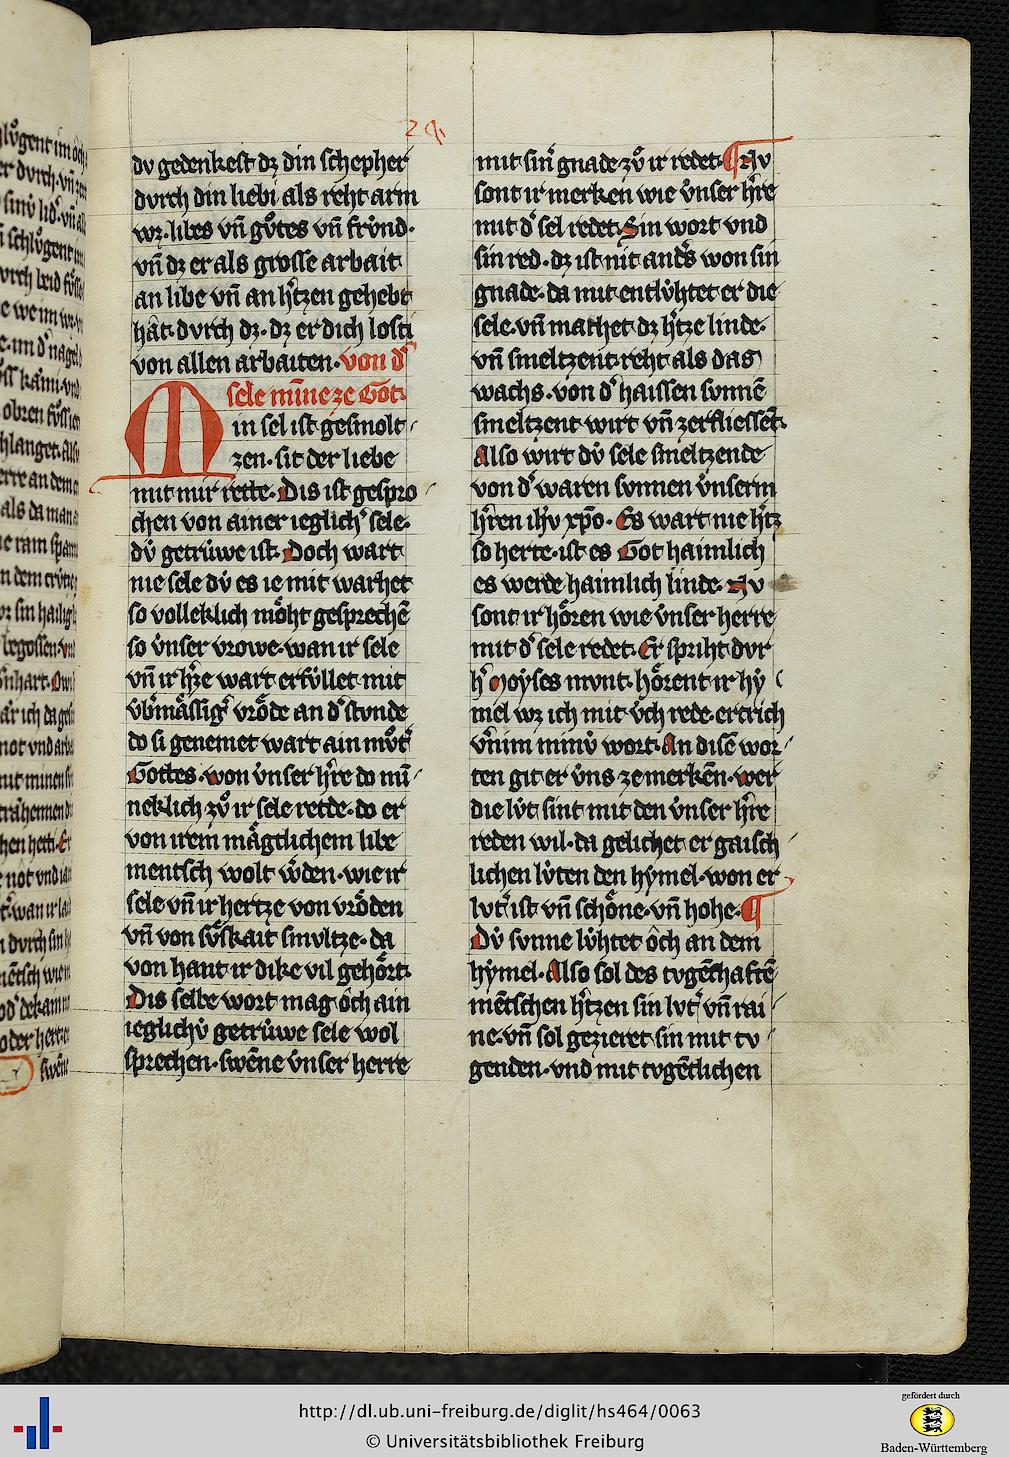 29
dv gedenkest dz din schepher
dvrch din liebi als reht arm
wz. libes vn̄ gvͦtes vn̄ frv́nd.
vn̄ dz er als grosse arbait
an libe vn̄ an h'tzen gehebt
hât. dvrch dz. dz er dich losti
von allen arbaiten. von d'
sele min̄e ze Got.
Min sel ist gesmolt
zen. sit der liebe
mit mir rette. Dis ist gespro
chen von ainer ieglich' sele.
dv́ getrúwe ist. Doch wart
nie sele dv́ es ie mit warhet
so volleklich moͤht gesprechē
so v́nser vrowe. wan ir sele
vn̄ ir h'ze wart erfv́llet mit
v́b'maͤssig' vroͤde an d' stvnde
do si genemet wart ain mvͦt'
Gottes. won v́nser h're do mī
neklich zvͦ ir sele rette. do er
von irem maͤgtlichem libe
mentsch wolt w'den. wie ir
sele vn̄ ir hertze von vroͤden
vn̄ von svͤskait smvltze. da
von hant ir dike vil gehoͤrt.
Dis selbe wort mag och ain
ieglichv́ getrúwe sele wol
sprechen. swēne v́nser herre
mit sin' gnade. zvͦ ir redet. ¶ Nv
sont ir merken wie v́nser h're
mit d' sel redet. Sin wort vnd
sin red. dz ist nit and's won sin
gnade. da mit entlv́htet er die
sele. vn̄ machet dz h'tze linde.
vn̄ smeltzent. reht als das
wachs. von d' haissen svnnē
smeltzent wirt vn̄ zerfliessēt.
Also wirt dv́ sele smeltzende
von d' waren svnnen v́nserm
h'ren ih'v xp̄o. Es wart nie h'tz
so herte. ist es Got haimlich
es werde haimlich linde. Nv
sont ir hoͤren wie v́nser herre
mit d' sele redet. Er spriht dvr
h' Moyses mvnt. hoͤrent ir hy
mel wz ich mit v́ch rede. ertrich
v'nim minv́ wort. An disē wor
ten git er v́ns ze merkēn. wer
die lv́t sint mit den v́nser h're
reden wil. da gelichet er gaisch
lichen lv́ten den hymel. won er
lvt' ist vn̄ schoͤne. vn̄ hohe. ¶
Dv́ svnne lv́htet och an dem
hymel. Also sol des tvgēthaftē
mētschen h'tzen sin lvt' vn̄ rai
ne. vn̄ sol gezieret sin mit tv
genden. vnd mit tvgētlichen
http://dl.ub.uni-freiburg.de/diglit/hs464/0063
© Universitätsbibliothek Freiburg
gefördert durch
Baden-Württemberg